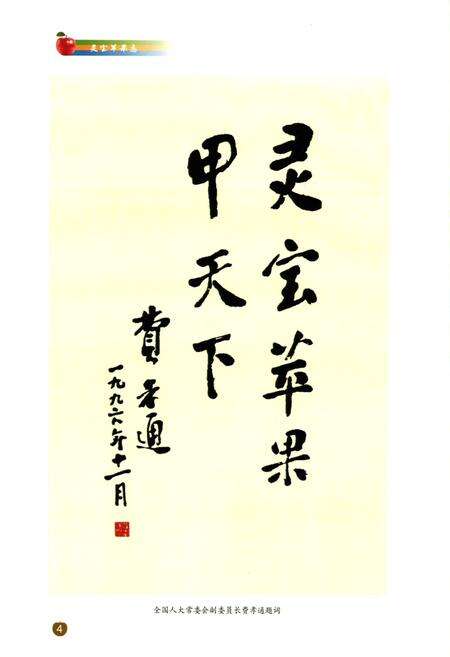 灵宝苹果志
灵宝苹果
甲天下
费孝通
一九九六年十一月
全国人大常委会副委员长费孝通题词
4